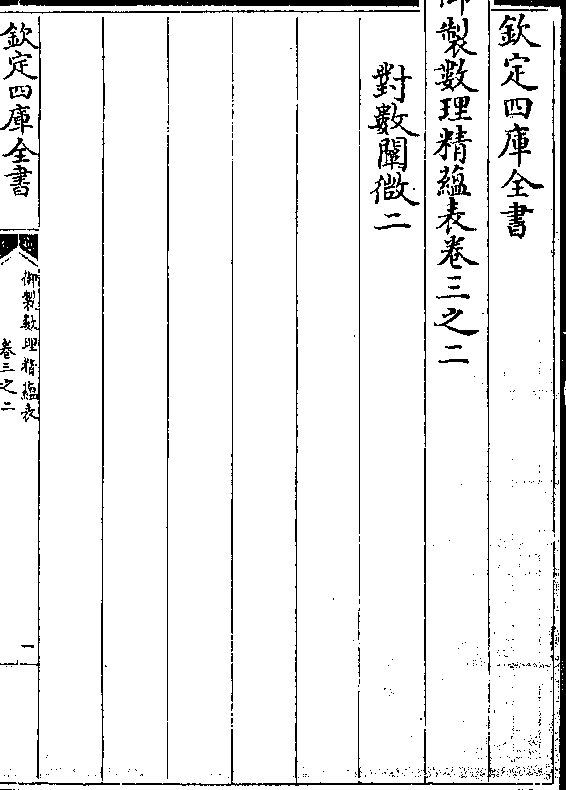 欽定四庫全書
御製數理精藴表卷三之二
對數闡微二
欽定四庫全書
御製數理精藴表
卷三之二
一